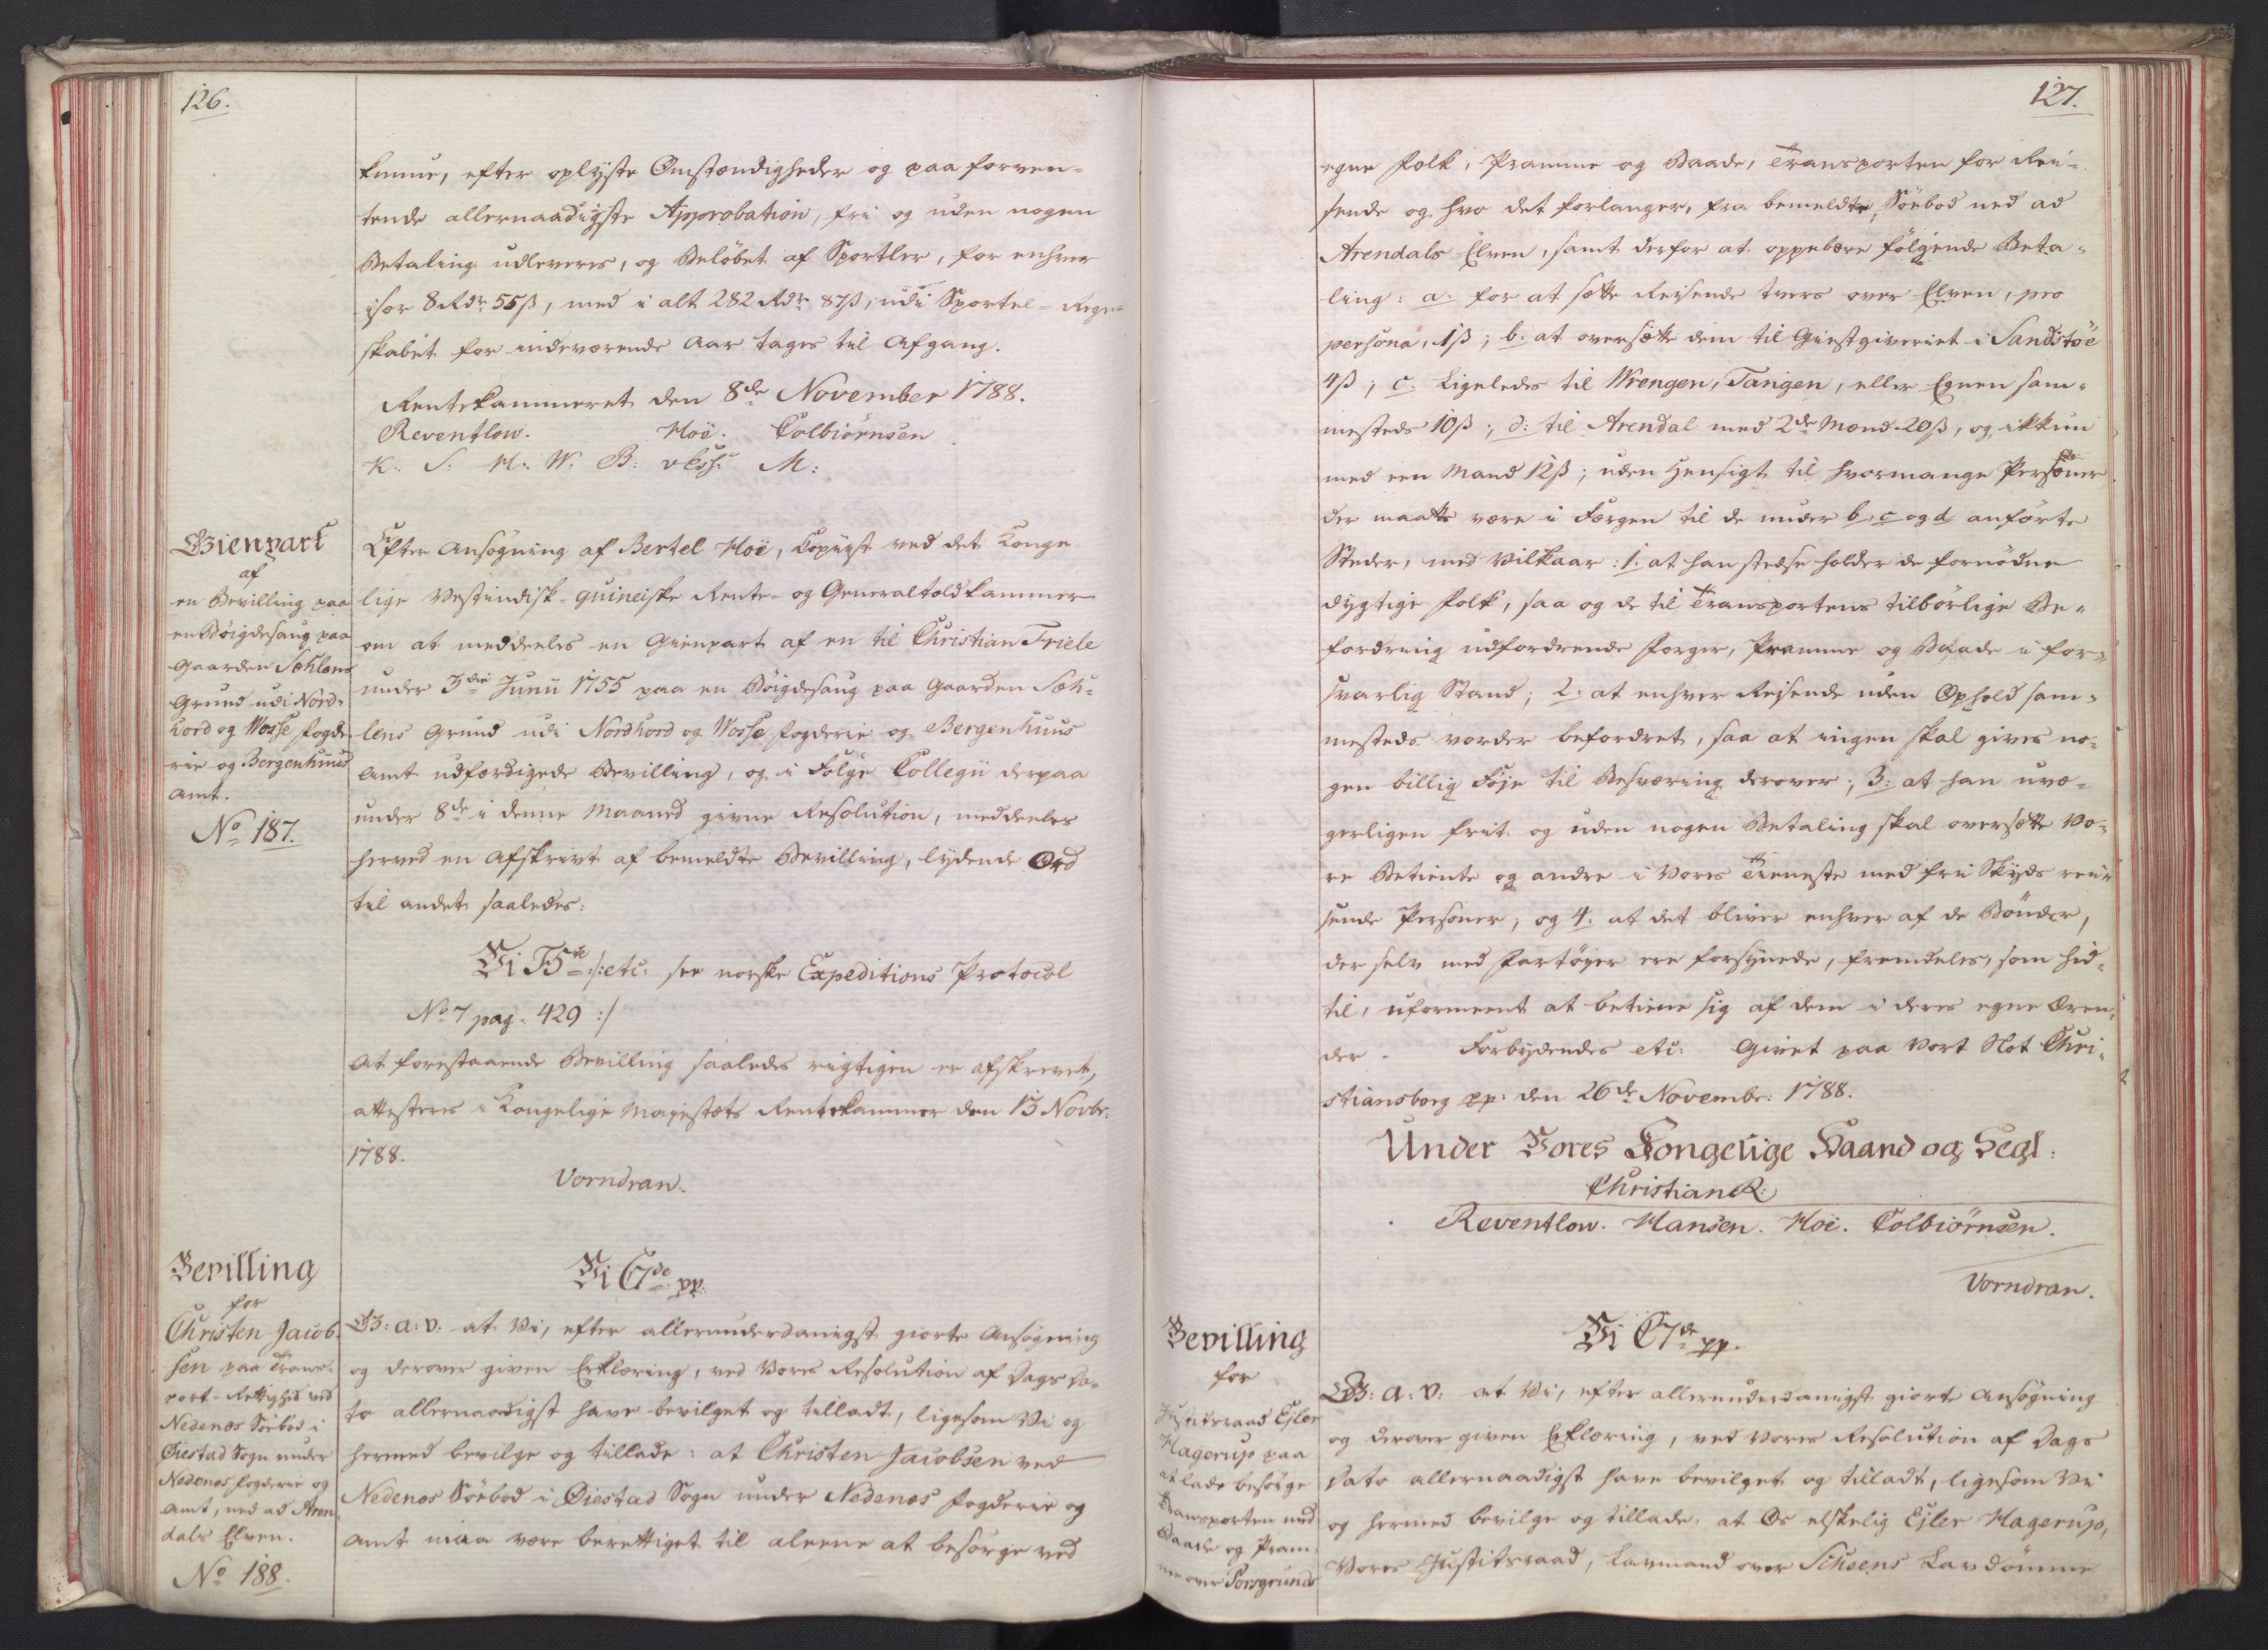 126.
kunne, efter oplyste Omstændigheder og paa forven-
tende allernaadigste Approbation, fri og uden nogen
Betaling udleveres, og Beløbet af Sportler, for enhver
især 8 Rdr 55 ß, med i alt 282 Rdr 87 ß, udi Sportel-Regn-
skabet for indeværende Aar tages til Afgang.
Rentekammeret den 8de November 1788.
Reventlow. Hoë. Colbiörnsen.
K. S. H. W. B: M:
Gienpart
af
en Bevilling paa
en Bøigdesaug paa
Gaarden Sæhlens
Grund udi Nord-
hord og Wosse Fogde-
rie og Bergenhuus
Amt.
No 187.
Efter Ansøgning af Bertel Hoë, Copiist ved det Konge-
lige Vestindisk-guineiske Rente- og Generaltoldkammer
om at meddeeles en Gienpart af en til Christian Friele
under 3die Junii 1755 paa en Bøigdesaug paa Gaarden Sæh-
lens Grund udi Nordhord og Wosse Fogderie og Bergenhuus
Amt udfærdigede Bevilling, og i Følge Collegii derpaa
under 8de i denne Maaned givne Resolution, meddeeles
herved en Afskrivt af bemeldte Bevilling, lydende Ord
til andet saaledes:
Vi F5te /: etc: see norske Expeditions Protocol
No 7 pag. 429 :/
At forestaaende Bevilling saaledes rigtigen er afskrevet,
attesteres i Kongelige Majestæts Rentekammer den 13 Novbr:
1788.
Vorndran.
Bevilling
for
Christen Jacob-
sen paa Trans-
port-Rettighed ved
Nedenæs Söebod i
Øiestad Sogn under
Nedenæs Fogderie og
Amt, ned ad Aren-
dals Elven.
No 188.
Vi C7de pp:
G: a: v: at Vi, efter allerunderdanigst giorte Ansøgning
og derover given Erklæring, ved Vores Resolution af Dags Da-
to allernaadigst have bevilget og tilladt, ligesom Vi og
hermed bevilge og tillade: at Christen Jacobsen ved
Nedenæs Söebod i Øiestad Sogn under Nedenæs Fogderie og
Amt maa være berettiget til aleene at besørge ved
127.
egne Folk, Pramme og Baade, Transporten for Rei-
sende og hvo det forlanger, fra bemeldte Söebod ned ad
Arendals Elven, samt derfor at oppebære følgende Beta-
ling: a. for at sætte Reisende tvers over Elven, pro
persona, 1 ß; b. at oversætte dem til Giestgiveriet i Sandstöe
4 ß; c. Ligeledes til Wrengen, Tangen, eller Egnen sam-
mesteds 10 ß; d: til Arendal med 2de Mænd 20 ß, og ikkun
med een Mand 12 ß; uden Hensigt til hvormange Personer
der maatte være i Færgen til de under b, c og d anførte
Steder, med Vilkaar: 1. at han stedse holder de fornødne
dygtige Folk, saa og de til Transportens tilbørlige Be-
fordring udfordrende Færger, Pramme og Baade i for-
svarlig Stand; 2: at enhver Reisende uden Ophold sam-
mesteds vorder befordret, saa at ingen skal gives no-
gen billig Føje til Besværing derover; 3: at han uvæ-
gerligen frit og uden nogen Betaling skal oversætte Vo-
re Betiente og andre i Vores Tieneste med fri Skyds rei-
sende Personer; og 4. at det bliver enhver af de Bønder,
der selv med Fartøyer ere forsynede, fremdeles, som hid-
til, uformeent at betiene sig af dem i deres egne Æren-
der. Forbydendes etc: Givet paa Vort Slot Chri-
stiansborg pp: den 26de Novembr: 1788.
Under Vores Kongelige Haand og Segl.
Christian R.
Reventlow. Hansen. Hoë. Colbiörnsen.
Vorndran.
Bevilling
for
Justitsraad Ejler
Hagerup paa
at lade besørge
Transporten med
Baade og Pram-
me over Porsgrunds
Vi C7de pp.
G: a: v: at Vi, efter allerunderdanigst giorte Ansøgning
og derover given Erklæring, ved Vores Resolution af Dags
Dato allernaadigst have bevilget og tilladt, ligesom Vi
og hermed bevilge og tillade: at Os elskelig Ejler Hagerup,
Vores Justitsraad, Laugmand over Scheens Laugdömme